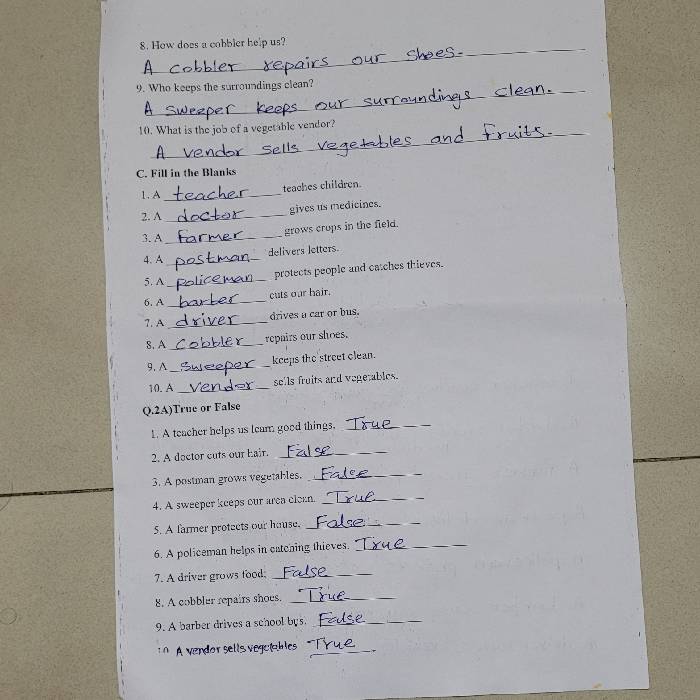 8. How does a cobbler help us?
A cobbler repairs our shoes.
9. Who keeps the surroundings clean?
A sweeper keeps our surroundings clean.
10. What is the job of a vegetable vendor?
A vendor sells vegetables and fruits.
C. Fill in the Blanks
1. A teacher teaches children.
2. A doctor gives us medicines.
3. A farmer grows crops in the field.
4. A postman delivers letters.
5. A policeman protects people and catches thieves.
6. A barber cuts our hair.
7. A driver drives a car or bus.
8. A cobbler repairs our shoes.
9. A sweeper keeps the street clean.
10. A vendor sells fruits and vegetables.
Q.2A)True or False
1. A teacher helps us learn good things. True
2. A doctor cuts our hair. False
3. A postman grows vegetables. False
4. A sweeper keeps our area clean. True
5. A farmer protects our house. False
6. A policeman helps in catching thieves. True
7. A driver grows food. False
8. A cobbler repairs shoes. True
9. A barber drives a school bus. False
10 A vendor sells vegetables True